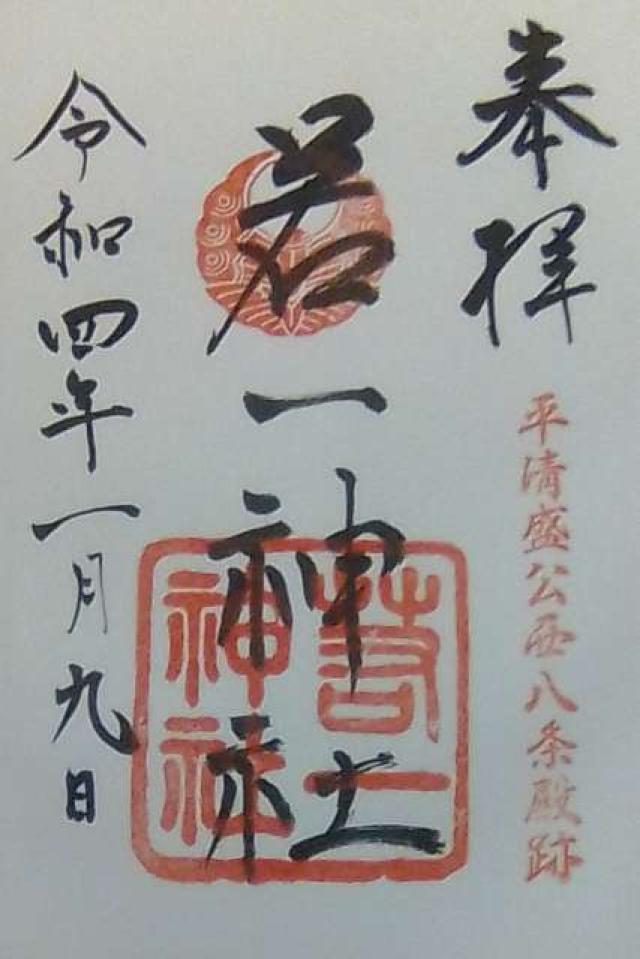 奉拝
平清盛公西八条殿跡
若一神社
若一
神社
令和四年一月九日